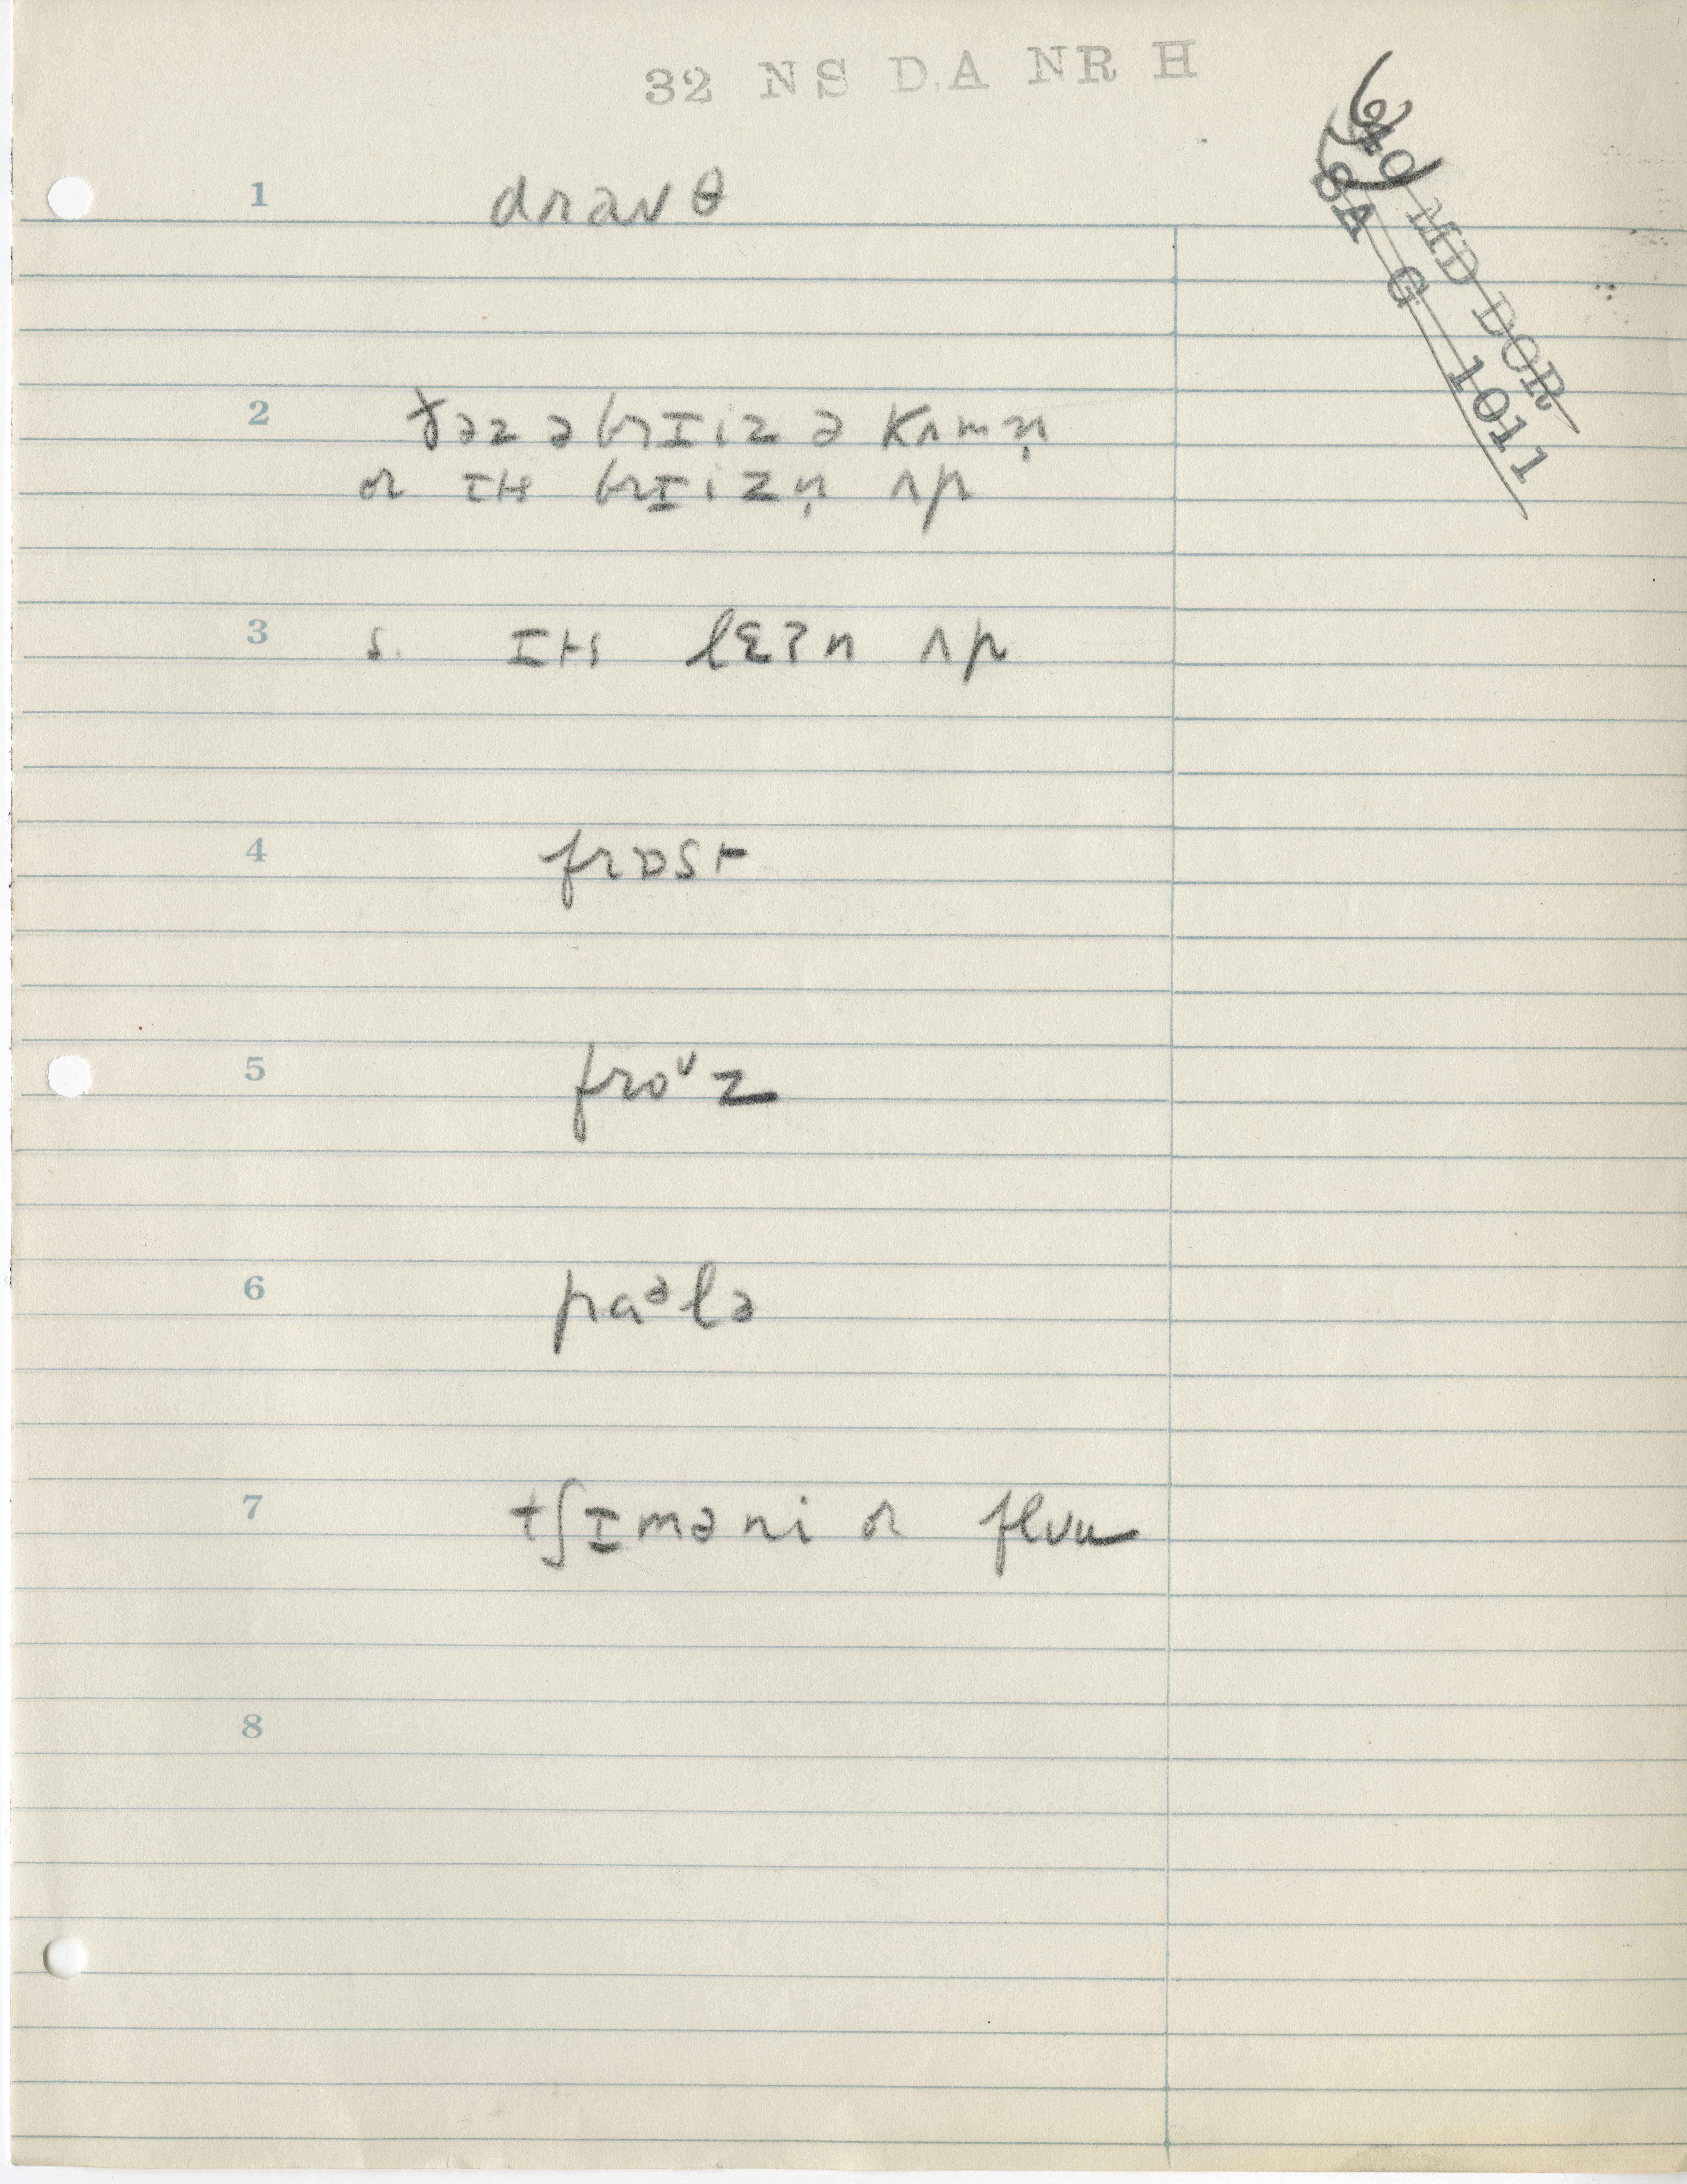 32 NS DA NR H
640 MD DOR
SA G 1011
1 draʊθ
2 ðəz ə brɪiz ə kʌmn̩
or ɪts brɪizn̩ ʌp
3 s. ɪts lɛʔn ʌp
4 frɒst
5 froᶷz
6 paᵊlə
7 tʃɪməni or flʊu
8